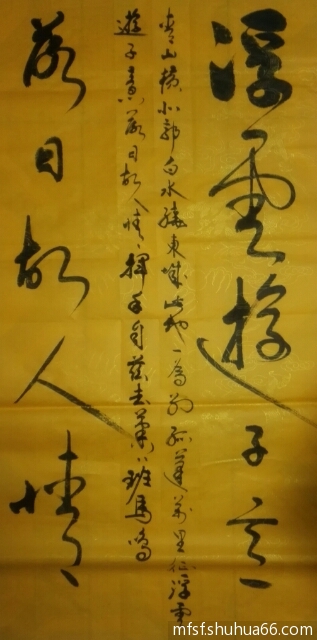 浮雲遊子意
青山橫北郭白水繞東城此地一為別孤蓬萬里征浮雲
遊子意落日故人情揮手自茲去蕭〻班馬鳴
落日故人情
mfsfshuhua66.com